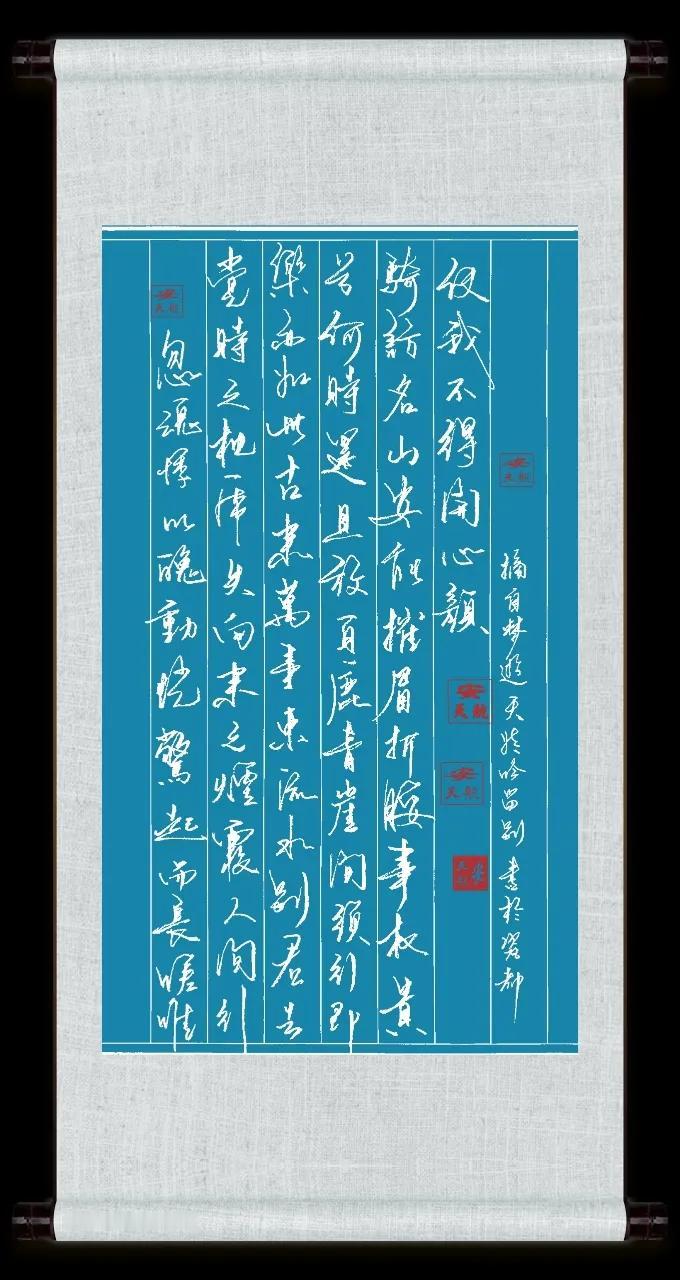 忽魂悸以魄動恍驚起而長嗟唯
覺時之枕席失向來之煙霞人間行
樂亦如此古來萬事東流水別君去
兮何時還且放白鹿青崖間須行即
騎訪名山安能摧眉折腰事權貴
使我不得開心顏
摘自梦遊天姥吟留别書於瓷都
安天航
安天航